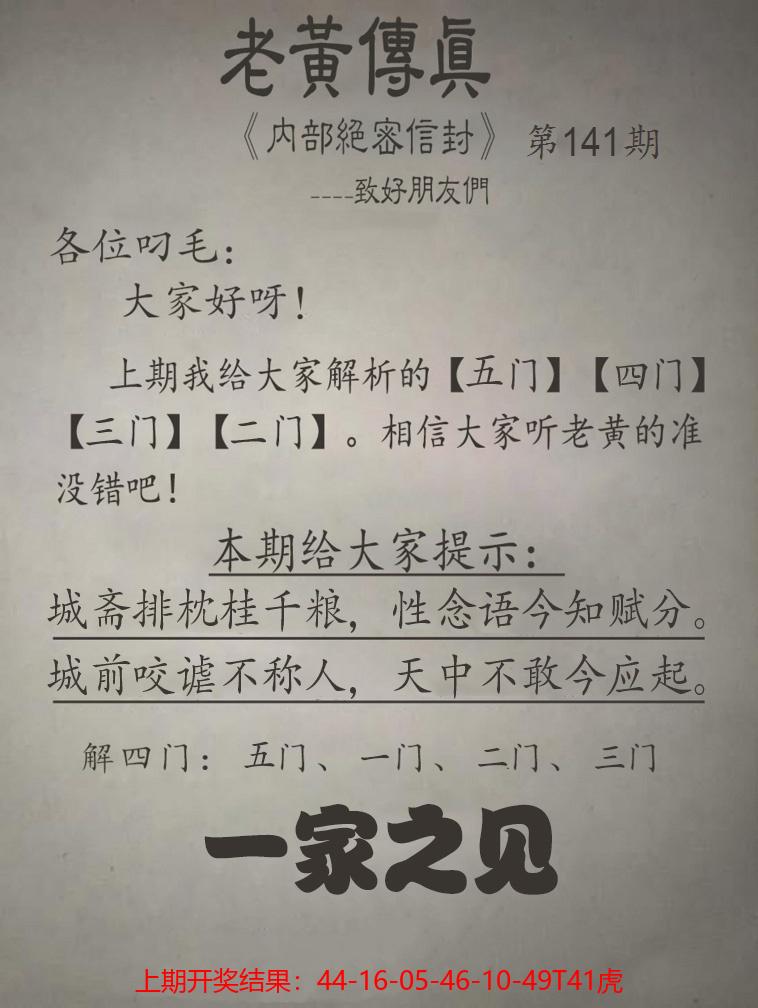 老黃傳眞
《内部絕密信封》 第141期
----致好朋友們
各位叼毛：
大家好呀！
上期我给大家解析的【五门】【四门】
【三门】【二门】。相信大家听老黄的准
没错吧！
本期给大家提示：
城斋排枕桂千粮，性念语今知赋分。
城前咬谑不称人，天中不敢今应起。
解四门： 五门、一门、二门、三门
一家之见
上期开奖结果：44-16-05-46-10-49T41虎